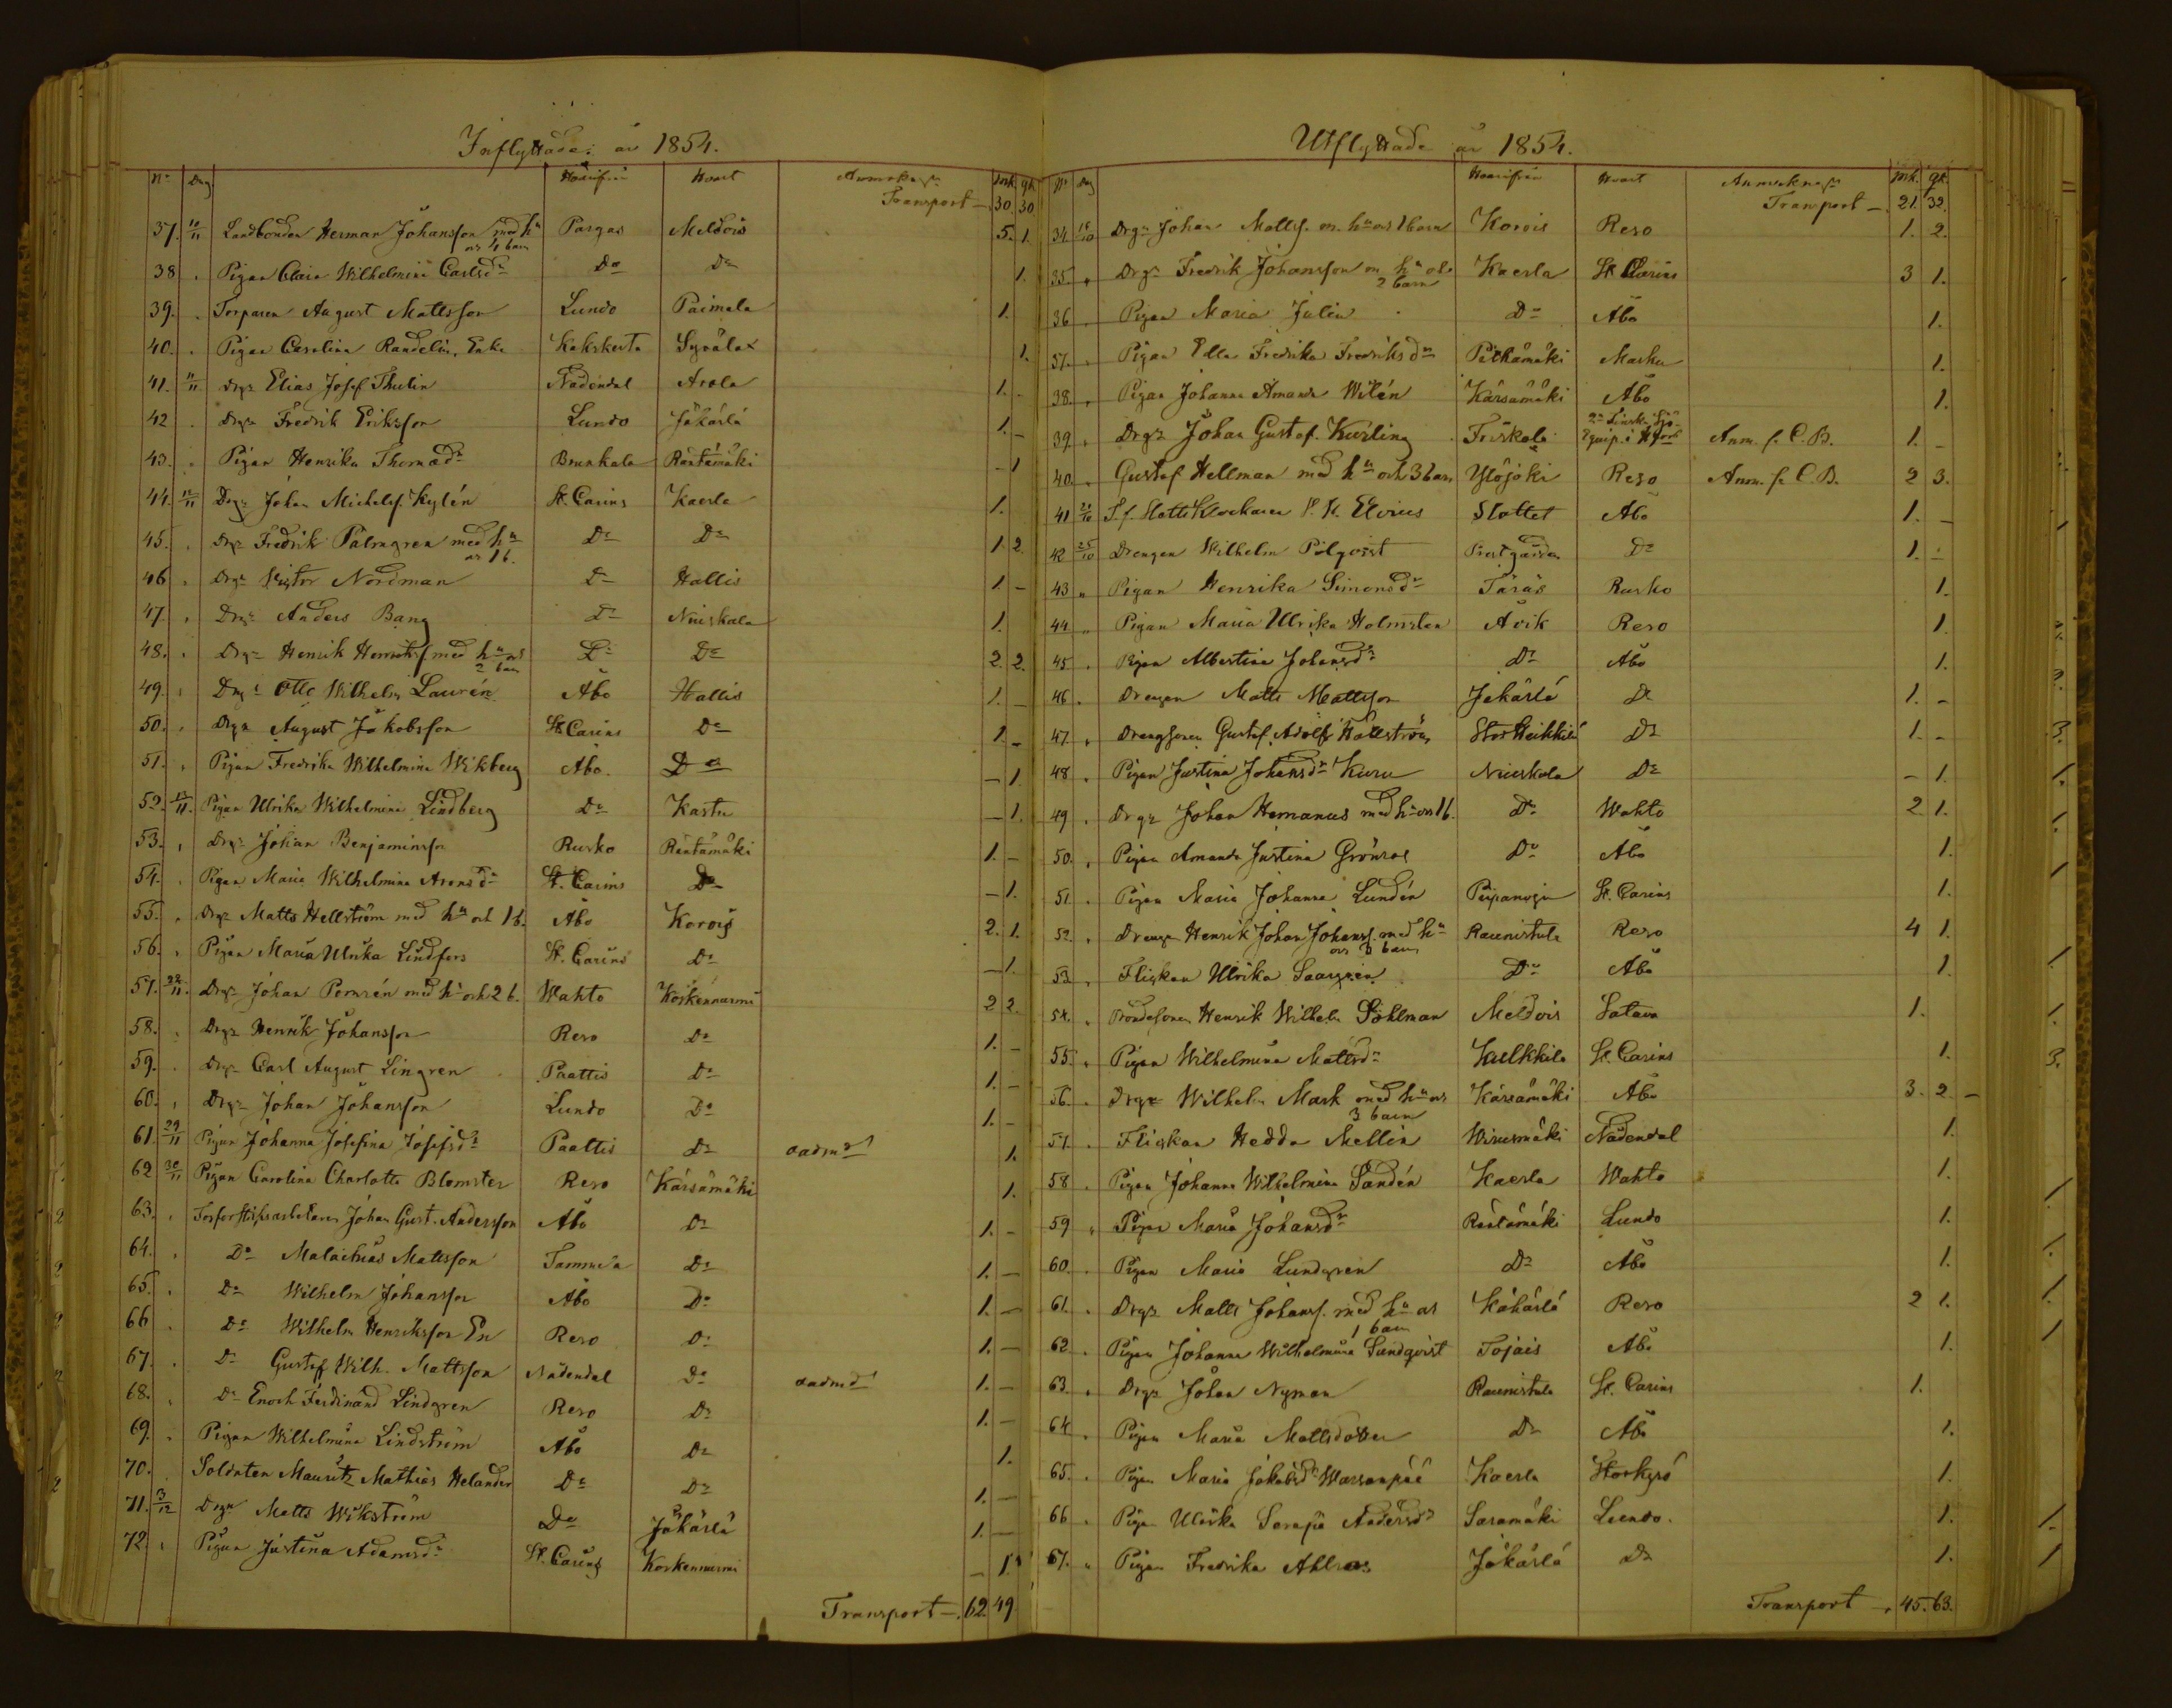 Inflyttade: år 1854.
No Dag Hvarifrån Hvart Anmärkngr mk. qk.
Transport — 30. 30
37. 10/11 Landbonden Herman Johansson med hu Pargas Meldois 5. 1.
os 4 barn
38. Pigan Clara Wilhelmina Carlsdr Do Do 1.
39. Torparen August Mattsson Lundo Paimala 1.
40. Pigan Carolina Randelin, Enka Kakskerta 1.
41. 11/11 Drgn Elias Josef Thulin Nådendal Arola 1. -
42 Drgn Fredrik Eriksson Lundo Jäkärlä 1. -
43. Pigan Henrika Thomadr Brunkala Räntämäki - 1
44. 12/11 Drgn Johan Michelsf. Kylén St. Carins Kaerla 1.
45. Drgn Fredrik Palmgren med hu Do Do 1. 2.
os 1 b.
46 Drgn Victor Nordman Do Hallis 1. -
47. Drgn Anders Bang Do Niuskala 1.
48. Drgn Henrik Henriksf med hu os Do Do 2. 2.
2 barn
49. Drgn Otto Wilhelm Laurén Åbo Hallis 1. -
50. Drgn August Jakobsson St Carins Do 1. -
51. Pigan Fredrika Wilhelmina Wikberg Åbo. Do - 1
52. 13/11. Pigan Ulrika Wilhelmina Lindberg Do Kastu - 1.
53. Drgn Johan Benjaminsson Rusko Räntämäki 1. -
54. Pigan Maria Wilhelmina Aronsdr St. Carins Do - 1.
55. Drgn Matts Hellström med hu och 1 b. Åbo Korois 2. 1.
56. Pigan Maria Ulrika Lindfors St. Carins Do - 1.
57. 22/11. Drgn Johan med hu och 2 b. Wahto Koskennurmi 2 2.
58. Drgn Henrik Johansson Reso Do 1. -
59. Drgn Carl August Lingren Paattis Do 1. -
60. Drgn Johan Johansson Lundo Do 1. -
61. 29/11 Pigan Johanna Josefina Josefsdr Paattis Do oadmd 1.
62 30/11 Pigan Carolina Charlotta Blomster Reso Kärsämäki 1.
63. Johan Gust. Andersson Åbo Do 1. -
64. Do Malachias Mattsson Tammela Do 1. —
65. Do Wilhelm Johansson Åbo Do 1. —
66 Do Wilhelm Henriksson En Reso Do 1. —
67. Do Gustaf Wilh. Mattsson Nådendal Do oadmd 1. —
68. Do Enoch Ferdinand Lindgren Reso Do 1. -
69. Pigan Wilhelmina Lindström Åbo Do 1.
70. Soldaten Mauritz Mathias Helander Do Do 1. —
71. 3/12 Drgn Matts Wikström Do Jäkärlä 1. —
72. Pigan Justina Adamsdr St. Carins Koskennurmi - 1.
Transport —. 62. 49
Utflyttade år 1854.
No Dag Hvarifrån Hvart Anmärkngr mk. qk.
Transport — 21. 32.
34. 18/10 Drgn Johan Mattsf. m. hu os 1 barn Korois Reso 1. 2.
35. Drgn Fredrik Johansson m hu och Kaerla St. Carins 3 1.
2 barn
36 Pigan Maria Julin Do Åbo 1.
37. Pigan Edla Fredrika Fredriksdr Pitkämäki Masku 1.
38. Pigan Johanna Amanda Wilén Kärsämäki Åbo 1.
39. Drgn Johan Gustaf Kurling Friskala Equip. i Anm. f. C. B. 1. -
40. Gustaf Hellman med hu och 3 barn Ylöjoki Reso Anm. f. C. B. 2 3.
41 S. f. Slotts Klockaren Elvius Slottet Åbo 1. -
42 25/10 Drengen Wilhelm Pilqvist Prestgården Do 1. -
43 Pigan Henrika Simonsdr Taras Rusko 1.
44 Pigan Maria Ulrika Holmsten Avik Reso 1.
45 Pigan Albertina Johansdr Do Åbo 1.
46. Drengen Matts Mattsson Jäkärlä Do 1. -
47. Drengsonen Gustaf Adolf Hällström Stor Heikkilä Do 1. -
48 Pigan Justina Johansdr Kuru Niuskala Do - 1.
49 Drgn Johan Hermanus med hu os 1 b. Do Wahto 2 1.
50. Pigan Amanda Justina Grönros Do Åbo 1.
51. Pigan Maria Johanna Lundén St. Carins 1.
52. Drengn Henrik Johan Johansf. med hu Raunistula Reso 4 1.
53. Flickan Ulrika Do Åbo 1.
54. Bondesonen Henrik Wilhelm Söhlman Meldois Satava 1.
55. Pigan Wilhelmina Mattsdr St. Carins 1.
56. Drgn Wilhelm Mark med hu os Kärsämäki Åbo 3. 2 -
3 barn
57. Flickan Hedda Mellin Wirusmäki Nådendal 1.
58 Pigan Johanna Wilhelmina Sandén Kaerla Wahto 1.
59 Pigan Maria Johansdr Räntämäki Lundo 1.
60. Pigan Maria Lundgren Do Åbo 1.
61. Drgn Matts Johansf. med hu os Kähärlä Reso 2 1.
1 barn
62 Pigan Johanna Wilhelmina Sandqvist Tojais Åbo 1.
63. Drgn Johan Nyman Raunistula St. Carins 1.
64 Pigan Maria Mattsdotter Do Åbo 1.
65. Pigan Maria Jakobsdr Kaerla Storkyrö 1.
66 Pigan Ulrika Andersdr Saramäki Lundo. 1.
67. Pigan Fredrika Ahlroos Jäkärlä Do 1.
Transport —. 45. 63.